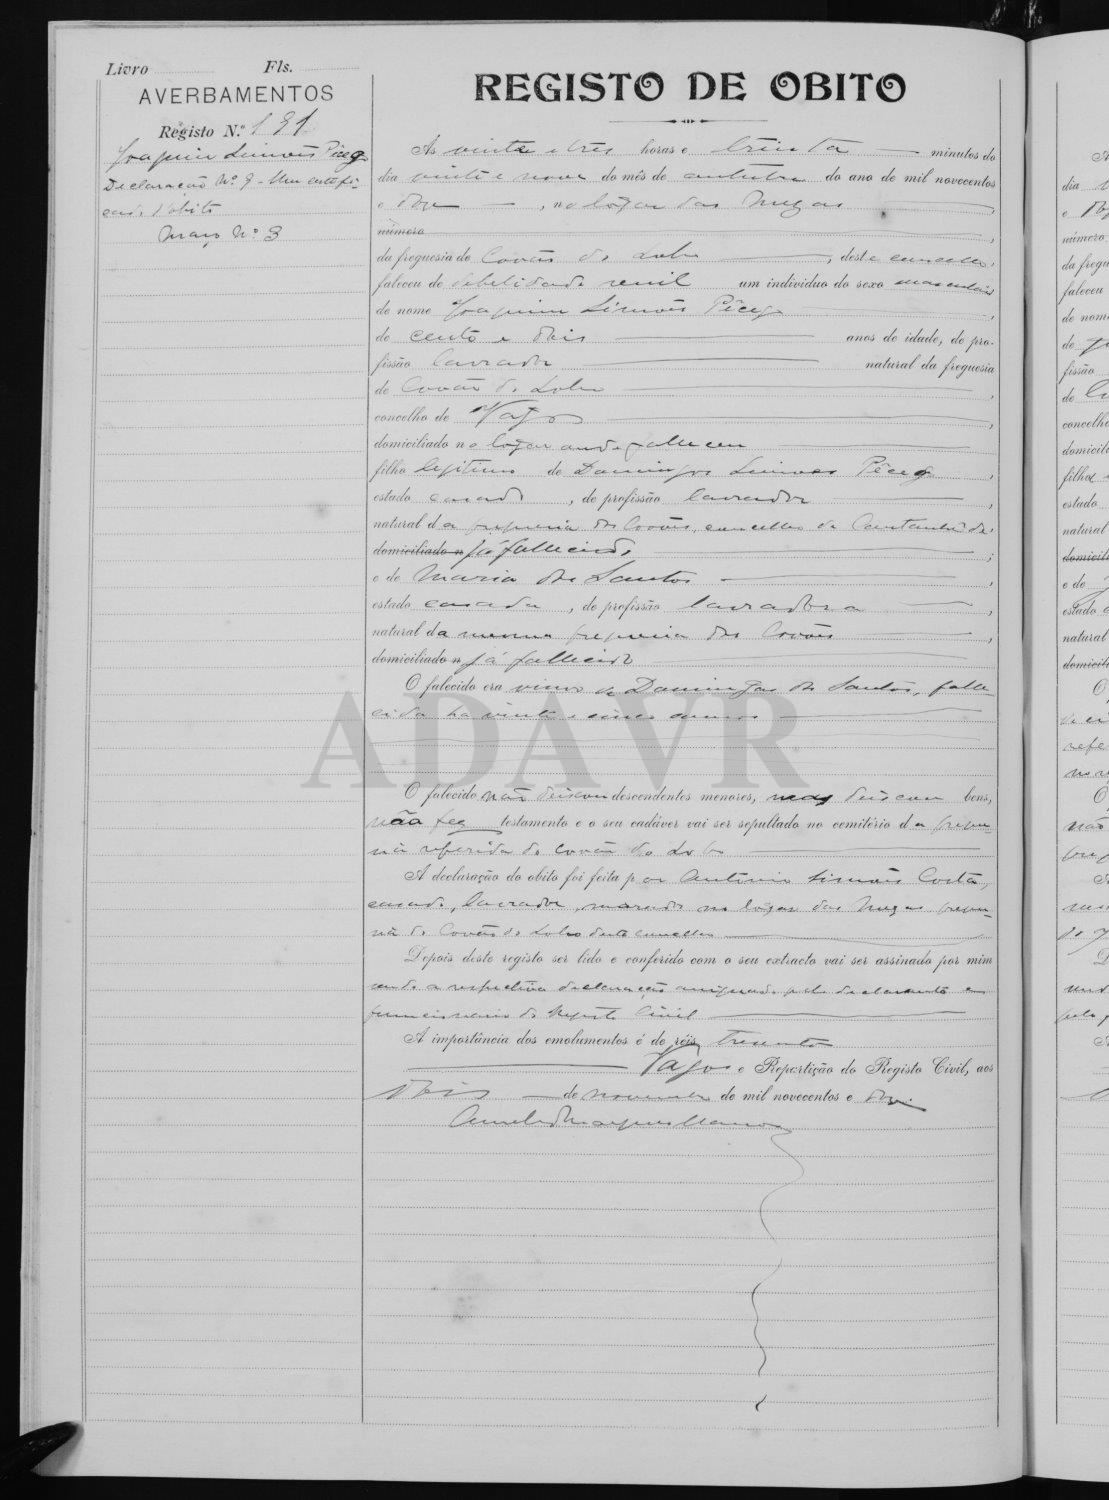 Livro Fls.
AVERBAMENTOS
Registo N.º 191
Joaquim Simões Pêcego
Declaração Nº 9 - Um certifi-
cado d'obito
Maço Nº 3
REGISTO DE OBITO
Ás vinte e três horas e trinta minutos do
dia vinte e nove do mês de outubro do ano de mil novecentos
e doze, no logar das
número
da freguesia de Covão do Lobo, deste concelho,
faleceu de debilidade senil um individuo do sexo masculino
de nome Joaquim Simões Pêcego
de cento e dois anos de idade, de pro-
fissão lavrador natural da freguesia
de Covão do Lobo
concelho de Vagos
domiciliado no logar onde falleceu
filho legitimo de Domingos Simões Pêcego
estado casado, de profissão lavrador
natural da freguesia dos Covões, concelho de Cantanhede,
domiciliado n já fallecido,
e de Maria dos Santos
estado casada, de profissão lavradora
natural da mesma freguesia dos Covões
domiciliado n já fallecida
O falecido era viuvo de dos Santos, falle-
cida ha vinte e cinco annos
O falecido não deixou descendentes menores, mas deixou bens,
não fez testamento e o seu cadáver vai ser sepultado no cemitério da fregue-
sia referida de Covão do Lobo
A declaração do obito foi feita por Antonio Simões Costa,
casado, lavrador, morador no logar das fregue-
sia de Covão do Lobo deste concelho
Depois deste registo ser lido e conferido com o seu extracto vai ser assinado por mim
sendo a respectiva declaração assignada pelo declarante e
funcionario do Registo Civil
A importância dos emolumentos é de réis trezentos
Vagos e Repartição do Registo Civil, aos
dois de novembro de mil novecentos e doze.
ADAVR